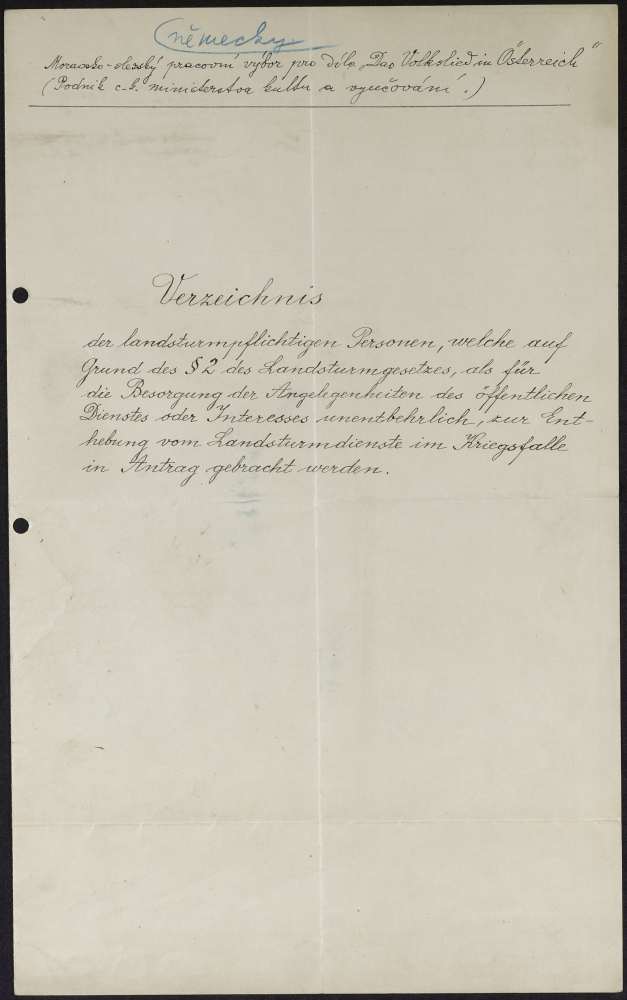 (německy
Moravsko-slezský pracovní výbor pro dílo „Das Volkslied in Österreich“
(Podnik c.-k. ministerstva kultu a vyučování.)
Verzeichnis
der landsturmpflichtigen Personen, welche auf
Grund des § 2 des Landsturmgesetzes, als für
die Besorgung der Angelegenheiten des öffentlichen
Dienstes oder Interesses unentbehrlich, zur Ent-
hebung vom Landsturmdienste im Kriegsfalle
in Antrag gebracht werden.